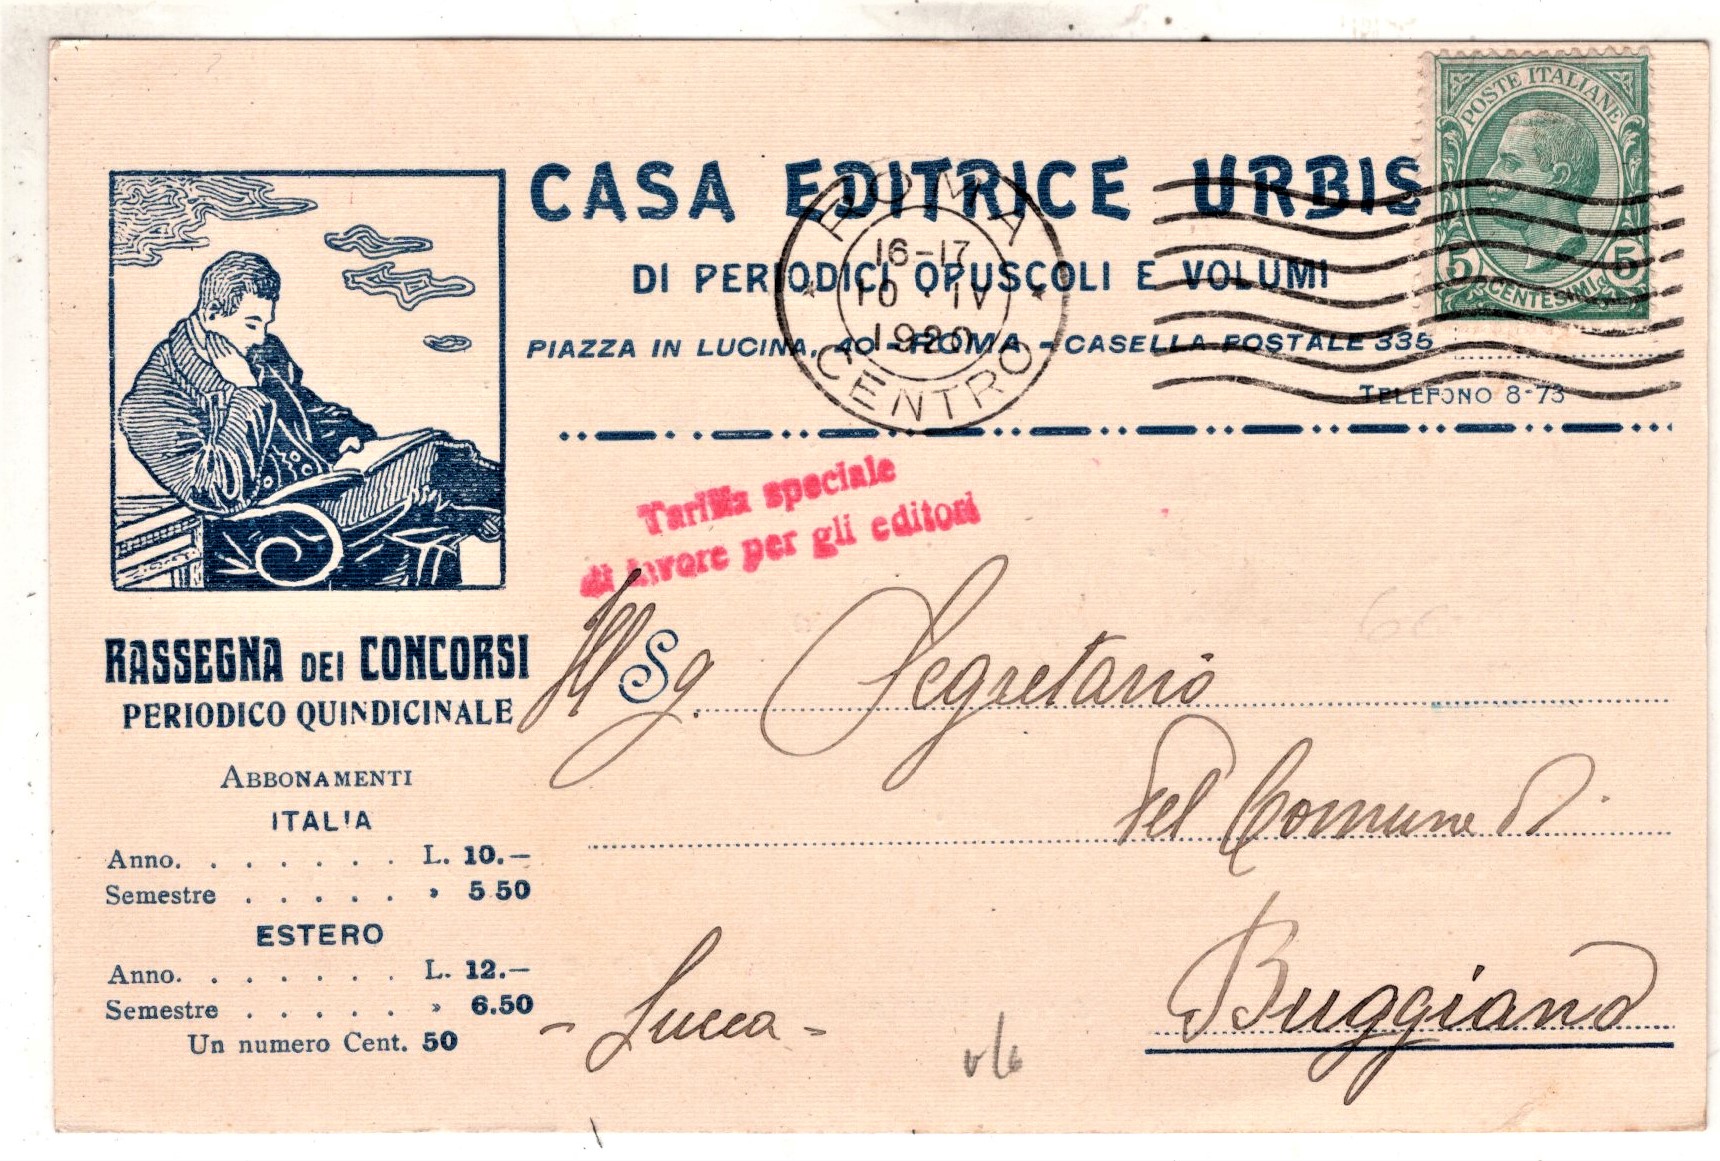 CASA EDITRICE URBIS
DI PERIODICI OPUSCOLI E VOLUMI
PIAZZA IN LUCINA, 40 - ROMA - CASELLA POSTALE 335
TELEFONO 8-73
POSTE ITALIANE
5 5
CENTESIMI
ROMA
16-17
10 · IV
1920
CENTRO
Tariffa speciale
di favore per gli editori
RASSEGNA DEI CONCORSI
PERIODICO QUINDICINALE
ABBONAMENTI
ITALIA
Anno. . . . . . . . L. 10.—
Semestre . . . . . » 5 50
ESTERO
Anno. . . . . . . . L. 12.—
Semestre . . . . . » 6.50
Un numero Cent. 50
Ill Sg. Segretario
del Comune di
Buggiano
- Lucca -